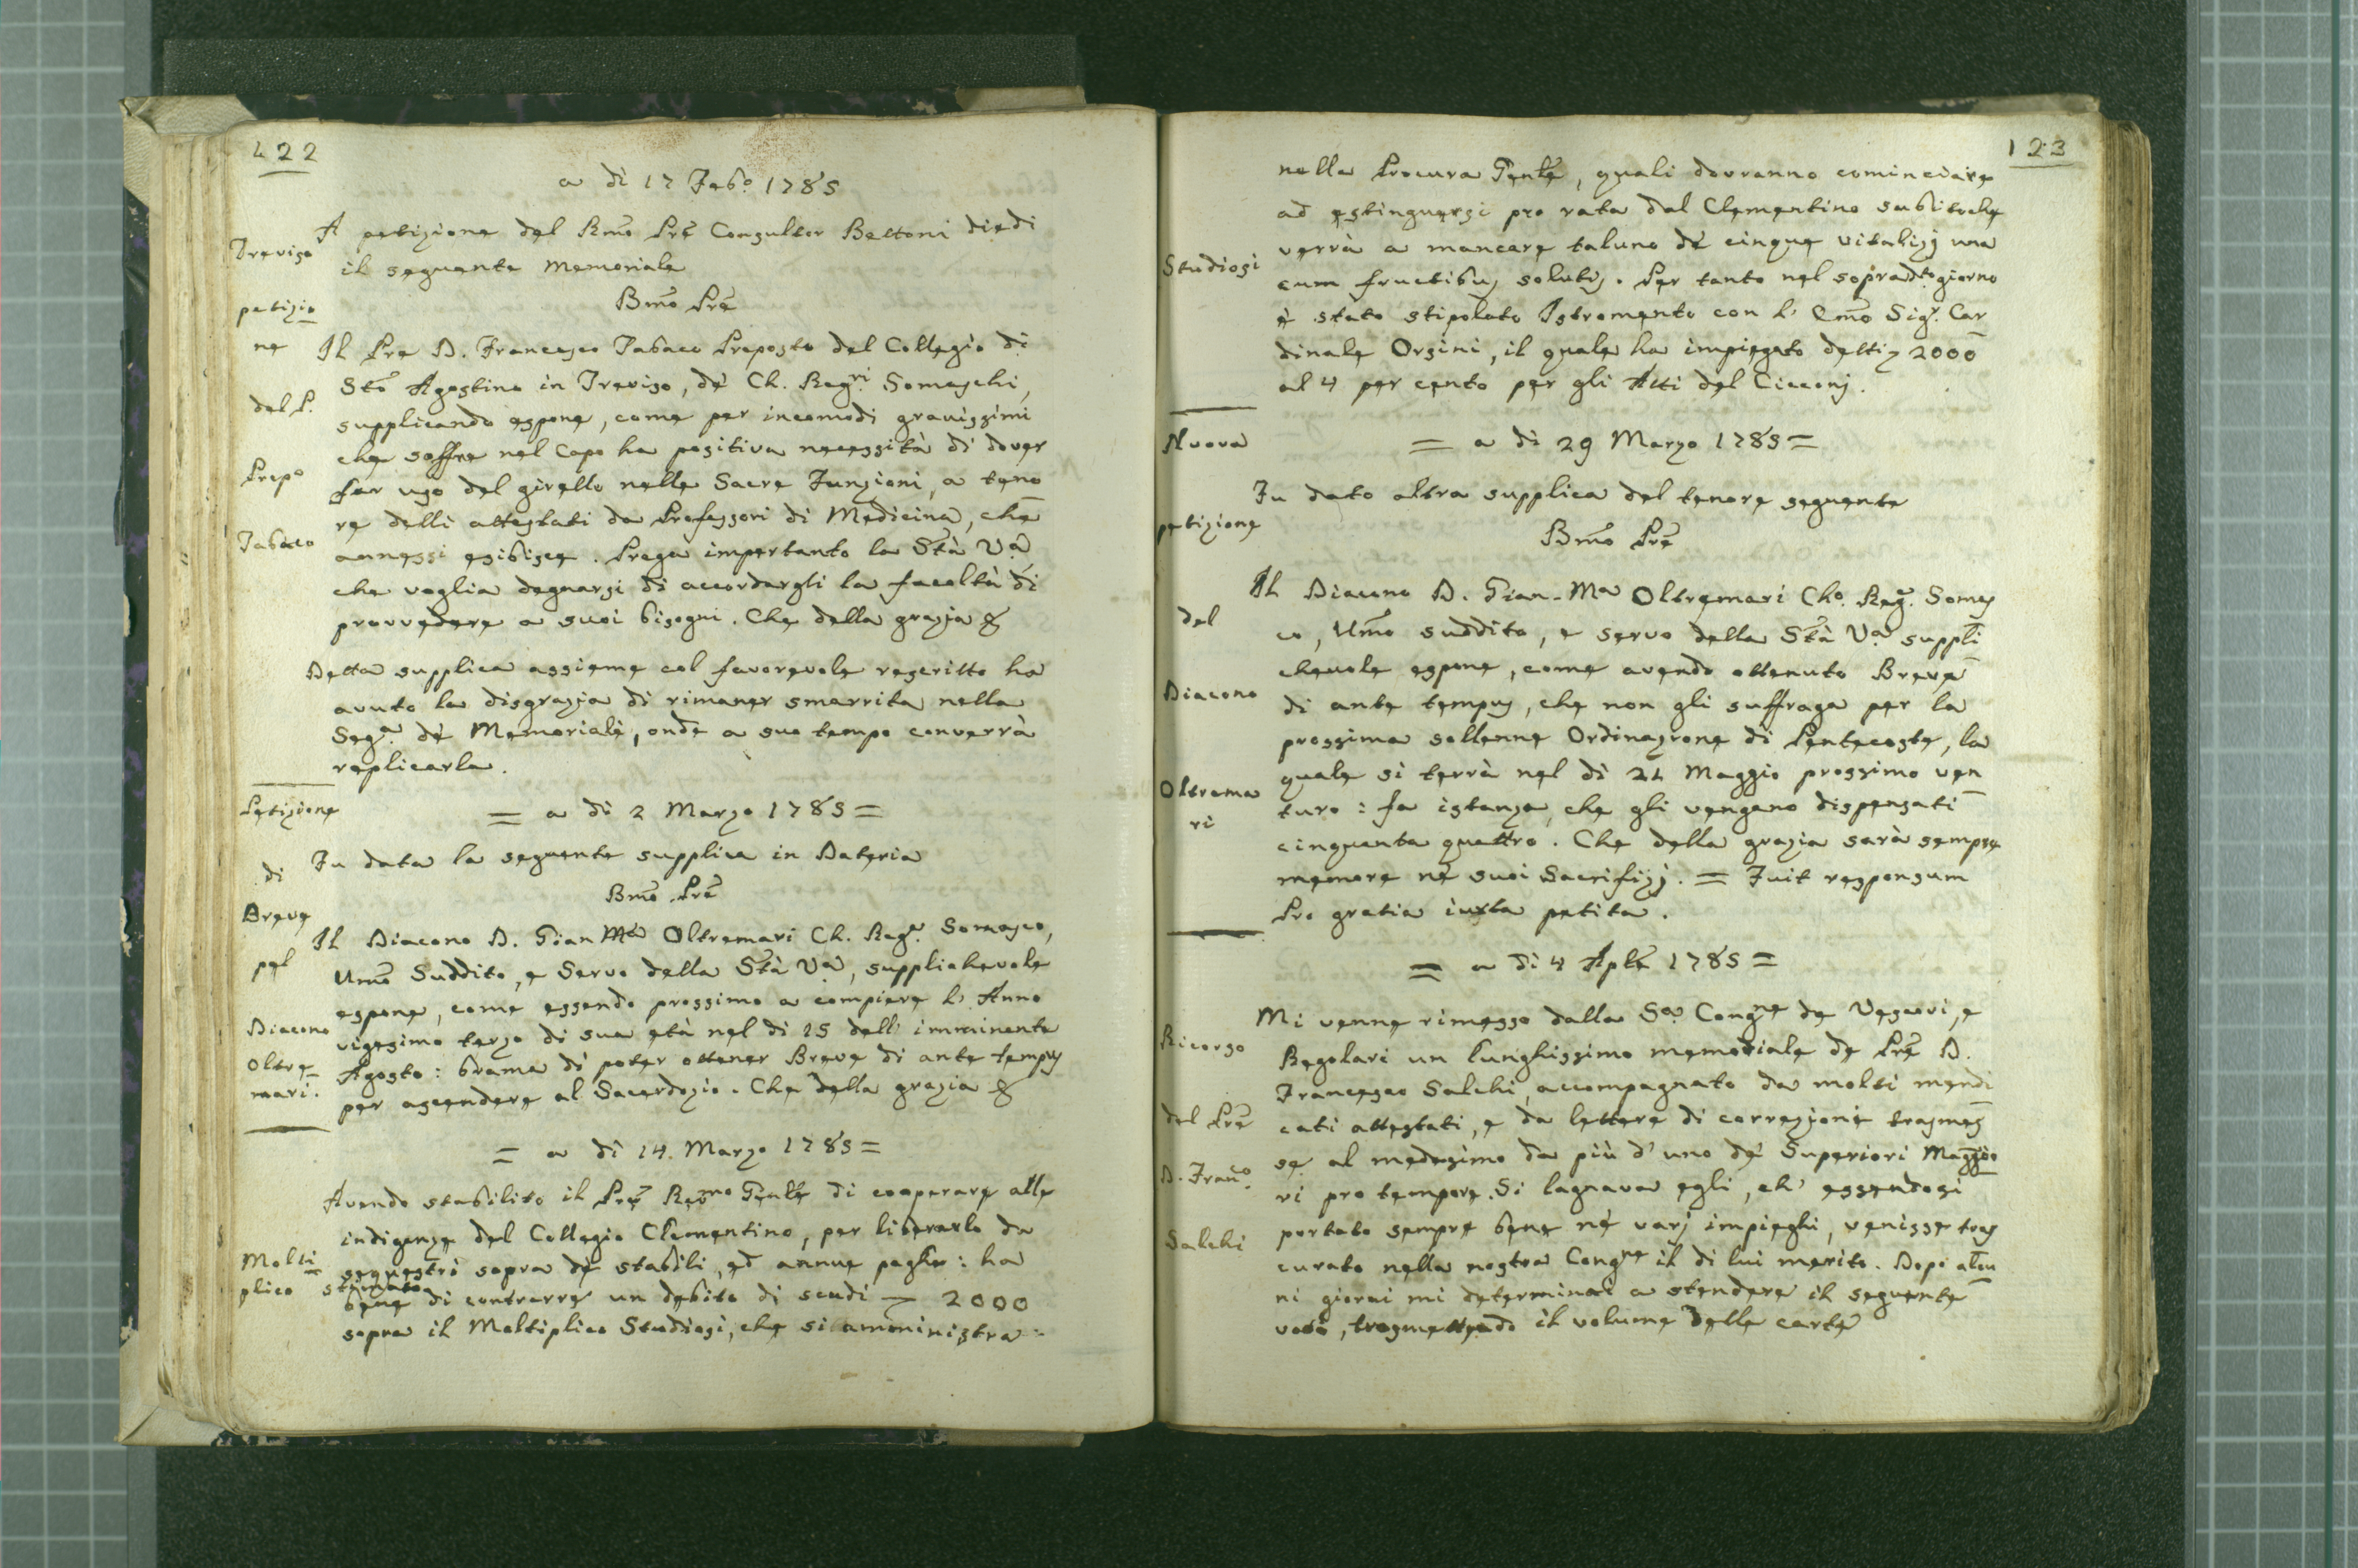 122
a dì 17 Febo. 1785
Treviso
petizio
ne
del P.
Prepo
Tabaco
A petizione del Rmo Pre Consultor Bettoni diedi
il seguente Memoriale
Bmo Pre
Il Pre D. Francesco Tabaco Preposto del Collegio di
Sto Agostino in Treviso, de' Ch. Regri Somaschi,
supplicando espone, come per incomodi gravissimi
che soffre nel Capo ha positiva necessità di dover
far uso del girello nelle Sacre Funzioni, a teno
re delli attestati da Professori di Medicina, che
annessi esibisce. Prega impertanto la Stà Va
che voglia degnarsi di accordargli la facoltà di
provvedere a suoi bisogni. Che della grazia &
Detta supplica assieme col favorevole rescritto ha
avuto la disgrazia di rimaner smarrita nella
Sega. de' Memoriali, onde a suo tempo converrà
replicarla.
= a dì 2 Marzo 1785 =
Petizione
di
Breve
pel
Diacono
Oltre
mari.
Fu data la seguente supplica in Dateria
Bmo Pre
Il Diacono D. Gian Ma Oltremari Ch. Regr. Somasco,
Umo Suddito, e Servo della Stà Va, supplichevole
espone, come essendo prossimo a compiere l' Anno
vigesimo terzo di sua età nel dì 15 delli imminente
Agosto: brama di poter ottener Breve di ante tempus
per ascendere al Sacerdozio. Che della grazia &
= a dì 14. Marzo 1785 =
Molti
plico
Avendo stabilito il Pre Revmo Genle di cooperare alle
indigenze del Collegio Clementino, per liberarlo da
sequestri sopra de' stabili, ed annue paghe: ha
stimato
bene di contrarre un debito di scudi 2000
sopra il Moltiplico Studiosi, che si amministra
123
Studiosi
nella Procura Genle, quali dovranno cominciare
ad estinguersi pro rata dal Clementino subitoche
verrà a mancare taluno de' cinque vitalizj una
cum fructibus solutis. Per tanto nel sopradto giorno
è stato stipolato Istromento con l' Emo Sigr. Car
dinale Orsini, il quale ha impiegato detti 2000
al 4 per cento per gli Atti del Cicconj.
= a dì 29 Marzo 1785 =
Nuova
petizione
del
Diacono
Oltrema
ri
Fu dato altra supplica del tenore seguente
Bmo Pre
Il Diacono D. Gian-Ma Oltremari Cho. Reg. Somas
co, Umo suddito, e servo della Stà Va suppli
chevole espone, come avendo ottenuto Breve
di ante tempus, che non gli suffraga per la
prossima sollenne Ordinazione di Pentecoste, la
quale si terrà nel dì 21 Maggio prossimo ven
turo: fa istanza, che gli vengano dispensati
cinquanta quattro. Che della grazia sarà sempre
memore ne' suoi Sacrifizj. = Fuit responsum
Pro gratia iuxta petita.
= a dì 4 Aple 1785 =
Ricorso
del Pre
D. Franco.
Salchi
Mi venne rimesso dalla Sa Congne de Vescovi, e
Regolari un lunghissimo memoriale de Pre D.
Francesco Salchi, accompagnato da molti mendi
cati attestati, e da lettere di correzioni trasmes
se al medesimo da più d' uno de' Superiori Maggio
ri pro tempore. Si lagnava egli, ch' essendosi
portato sempre bene ne' varj impieghi, venisse tras
curato nella nostra Congne il di lui merito. Dopo alcu
ni giorni mi determinai a stendere il seguente
voto, trasmettendo il volume delle carte